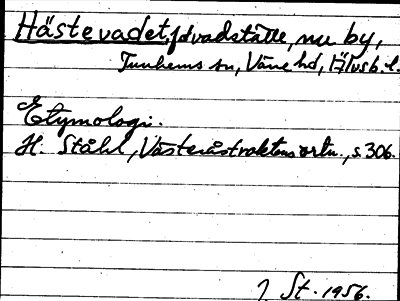 Hästevadet, f.d. vadställe, nu by,
Tunhems sn, Väne hd, Älvsb. l.
Etymologi.
H. Ståhl, Västeråstraktens ortn., s. 306.
St. 1956.